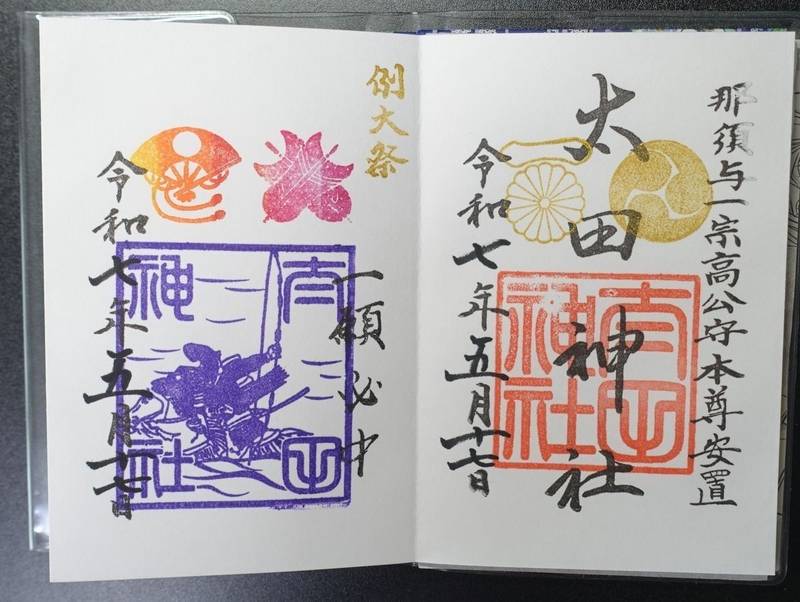 那須与一宗高公守本尊安置
太田神社
令和七年五月十七日
太田神社
例大祭
一願必中
令和七年五月十七日
太田神社